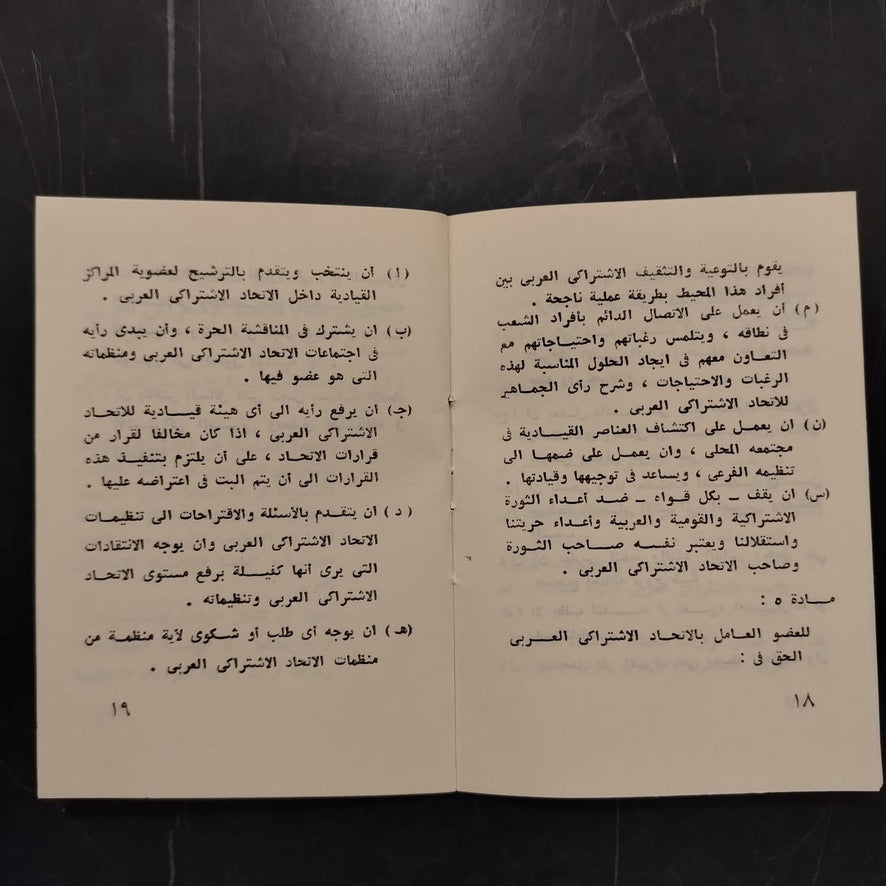 يقوم بالتوعية والتثقيف الاشتراكى العربى بين
أفراد هذا المحيط بطريقة عملية ناجحة .
( م ) أن يعمل على الاتصال الدائم بأفراد الشعب
فى نطاقه ، ويتلمس رغباتهم واحتياجاتهم مع
التعاون معهم فى ايجاد الحلول المناسبة لهذه
الرغبات والاحتياجات ، وشرح رأى الجماهير
للاتحاد الاشتراكى العربى .
(ن) ان يعمل على اكتشاف العناصر القيادية فى
مجتمعه المحلى ، وان يعمل على ضمها الى
تنظيمه الفرعى ، ويساعد فى توجيهها وقيادتها .
(س) ان يقف – بكل قواه – ضد أعداء الثورة
الاشتراكية والقومية والعربية وأعداء حريتنا
واستقلالنا ويعتبر نفسه صاحب الثورة
وصاحب الاتحاد الاشتراكى العربى .
مادة ٥ :
للعضو العامل بالاتحاد الاشتراكى العربى
الحق فى :
١٨
(أ) أن ينتخب ويتقدم بالترشيح لعضوية المراكز
القيادية داخل الاتحاد الاشتراكى العربى .
(ب) ان يشترك فى المناقشة الحرة ، وأن يبدى رأيه
فى اجتماعات الاتحاد الاشتراكى العربى ومنظماته
التى هو عضو فيها .
(جـ) ان يرفع رأيه الى أى هيئة قيادية للاتحاد
الاشتراكى العربى ، اذا كان مخالفا لقرار من
قرارات الاتحاد ، على أن يلتزم بتنفيذ هذه
القرارات الى أن يتم البت فى اعتراضه عليها .
( د ) ان يتقدم بالأسئلة والاقتراحات الى تنظيمات
الاتحاد الاشتراكى العربى وان يوجه الانتقادات
التى يرى أنها كفيلة برفع مستوى الاتحاد
الاشتراكى العربى وتنظيماته .
(هـ) ان يوجه أى طلب أو شكوى لأية منظمة من
منظمات الاتحاد الاشتراكى العربى .
١٩